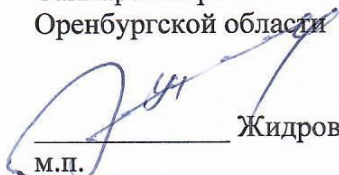 Оренбургской области
Жидров
м.п.